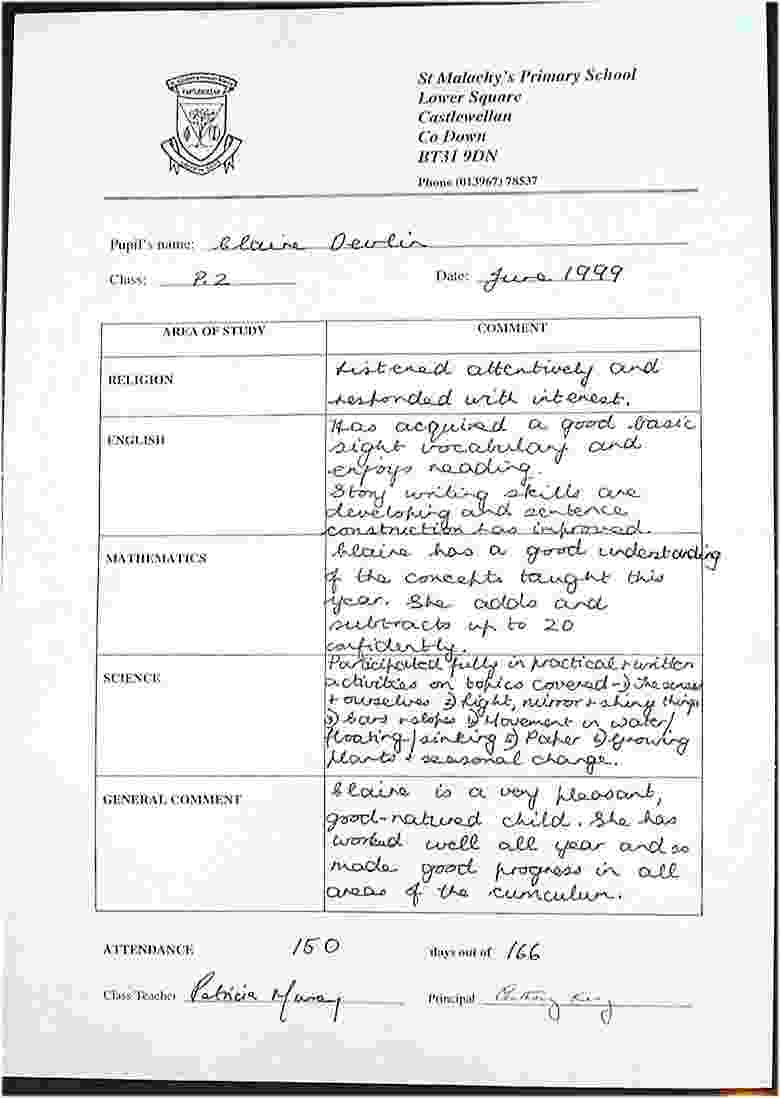 CASTLEWELLAN
St Malachy's Primary School
Lower Square
Castlewellan
Co Down
BT31 9DN
Phone (013967) 78537
Pupil's name: Claire Devlin
Class: P.2
Date: June 1999
AREA OF STUDY
COMMENT
RELIGION
Listened attentively and
responded with interest.
ENGLISH
Has acquired a good basic
sight vocabulary and
enjoys reading.
Story writing skills are
developing and sentence
construction has improved.
MATHEMATICS
Claire has a good understanding
of the concepts taught this
year. She adds and
subtracts up to 20
confidently.
SCIENCE
Participated fully in practical + written
activities on topics covered - 1) The senses
+ ourselves 2) Light, mirror + shiny things
3) Cars + slopes 4) Movement in water/
floating/sinking 5) Paper 6) Growing
Plants + seasonal change.
GENERAL COMMENT
Claire is a very pleasant,
good-natured child. She has
worked well all year and so
made good progress in all
areas of the curriculum.
ATTENDANCE 150 days out of 166
Class Teacher Patricia Murray
Principal Anthony King